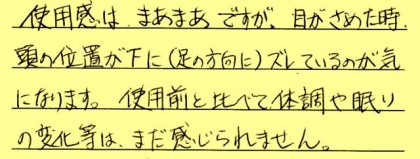 使用感は、まあまあですが、目がさめた時
頭の位置が下に(足の方向に)ズレているのが気
になります。使用前と比べて体調や眠り
の変化等は、まだ感じられません。